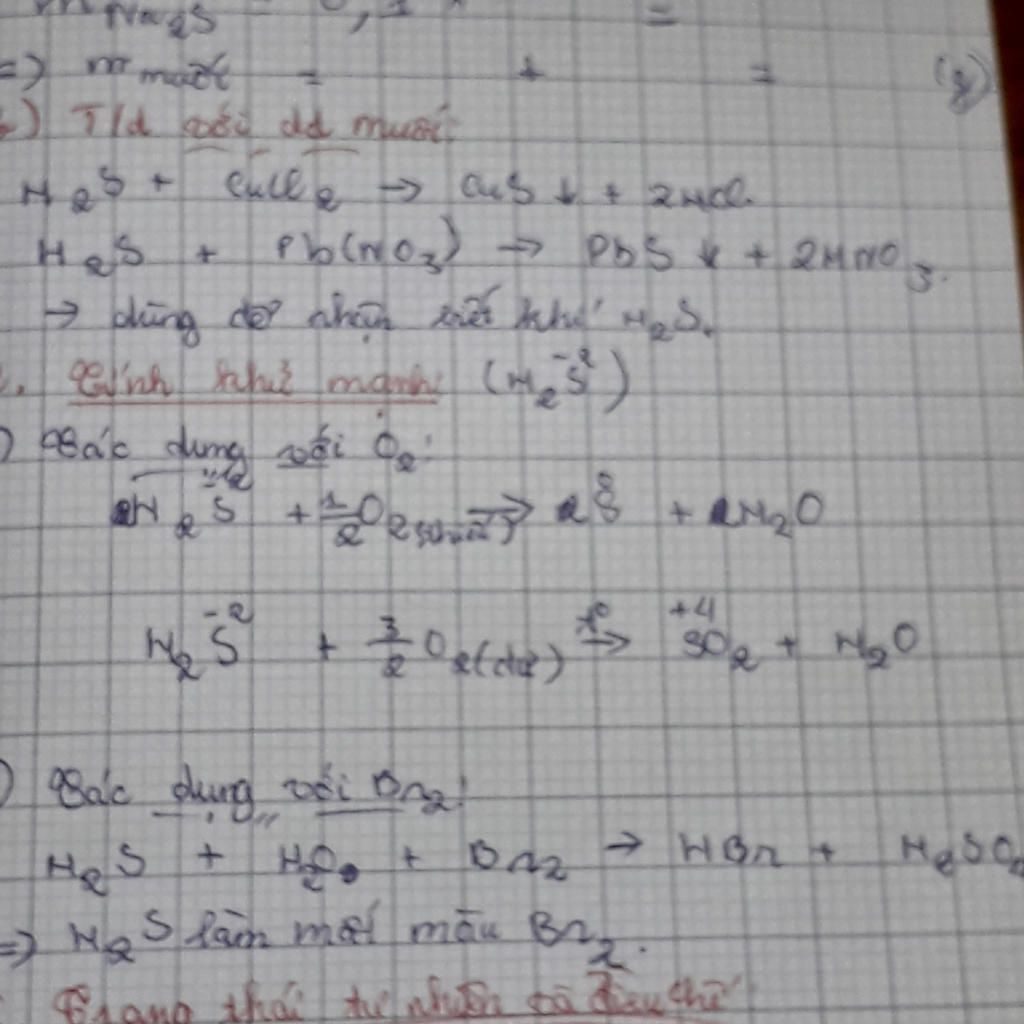 m Na2S = 0,1 × =
=> m muối = + = (g)
b) T/d với dd muối:
H2S + CuCl2 → CuS ↓ + 2HCl.
H2S + Pb(NO3) → PbS ↓ + 2HNO3.
→ dùng để nhận biết khí H2S.
Tính khử mạnh (H2S-2)
) Tác dụng với O2:
2H2S-2 + 1/2 O2 (thiếu) → S0 + H2O
H2S-2 + 3/2 O2(dư) t°→ +4SO2 + H2O
) Tác dụng với Br2:
H2S + H2O + Br2 → HBr + H2SO
=> H2S làm mất màu Br2.
Trạng thái tự nhiên và điều chế